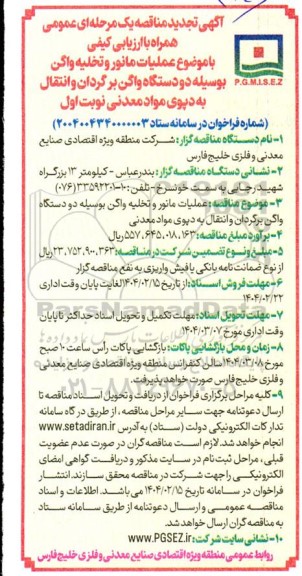 آگهی تجدید مناقصه یک مرحله ای عمومی
همراه با ارزیابی کیفی
با موضوع عملیات مانور و تخلیه واگن
بوسیله دو دستگاه واگن برگردان و انتقال
به دپوی مواد معدنی نوبت اول
P.G.M.I.S.E.Z
(شماره فراخوان در سامانه ستاد ۲۰۰۴۰۰۴۳۴۰۰۰۰۰۰۳)
۱- نام دستگاه مناقصه گزار: شرکت منطقه ویژه اقتصادی صنایع
معدنی و فلزی خلیج فارس
۲- نشانی دستگاه مناقصه گزار: بندرعباس - کیلومتر ۱۳ بزرگراه
شهید رجایی به سمت خونسرخ - تلفن: ۱۰-۳۳۵۹۲۲۰۱ (۰۷۶)
۳- موضوع مناقصه: عملیات مانور و تخلیه واگن بوسیله دو دستگاه
واگن برگردان و انتقال به دپوی مواد معدنی
۴- برآورد مبلغ مناقصه: ۵۵۷,۶۴۵,۰۱۸,۱۶۳ ریال
۵- مبلغ و نوع تضمین شرکت در مناقصه: ۲۳,۷۵۲,۹۰۰,۳۶۳ ریال
از نوع ضمانت نامه بانکی یا فیش واریزی به نفع مناقصه گزار
۶- مهلت فروش اسناد: از تاریخ ۱۴۰۴/۰۲/۱۵ لغایت پایان وقت اداری
۱۴۰۴/۰۲/۲۲
۷- مهلت تحویل اسناد: مهلت تکمیل و تحویل اسناد حداکثر تا پایان
وقت اداری مورخ ۱۴۰۴/۰۳/۰۷
۸- زمان و محل بازگشایی پاکات: بازگشایی پاکات راس ساعت ۱۰ صبح
مورخ ۱۴۰۴/۰۳/۰۸ سالن کنفرانس منطقه ویژه اقتصادی صنایع معدنی
و فلزی خلیج فارس صورت خواهد پذیرفت.
۹- کلیه مراحل برگزاری فراخوان از دریافت و تحویل اسناد مناقصه تا
ارسال دعوتنامه جهت سایر مراحل مناقصه، از طریق درگاه سامانه
تدارکات الکترونیکی دولت (ستاد) به آدرس www.setadiran.ir
انجام خواهد شد. لازم است مناقصه گران در صورت عدم عضویت
قبلی، مراحل ثبت نام در سایت مذکور و دریافت گواهی امضای
الکترونیکی را جهت شرکت در مناقصه محقق سازند. انتشار
فراخوان در سامانه تاریخ ۱۴۰۴/۰۲/۱۵ می باشد. اطلاعات و اسناد
مناقصه عمومی و ارسال دعوتنامه از طریق سامانه ستاد
به مناقصه گران ارسال خواهد شد.
۱۰- نشانی سایت شرکت: www.PGSEZ.ir
روابط عمومی منطقه ویژه اقتصادی صنایع معدنی و فلزی خلیج فارس